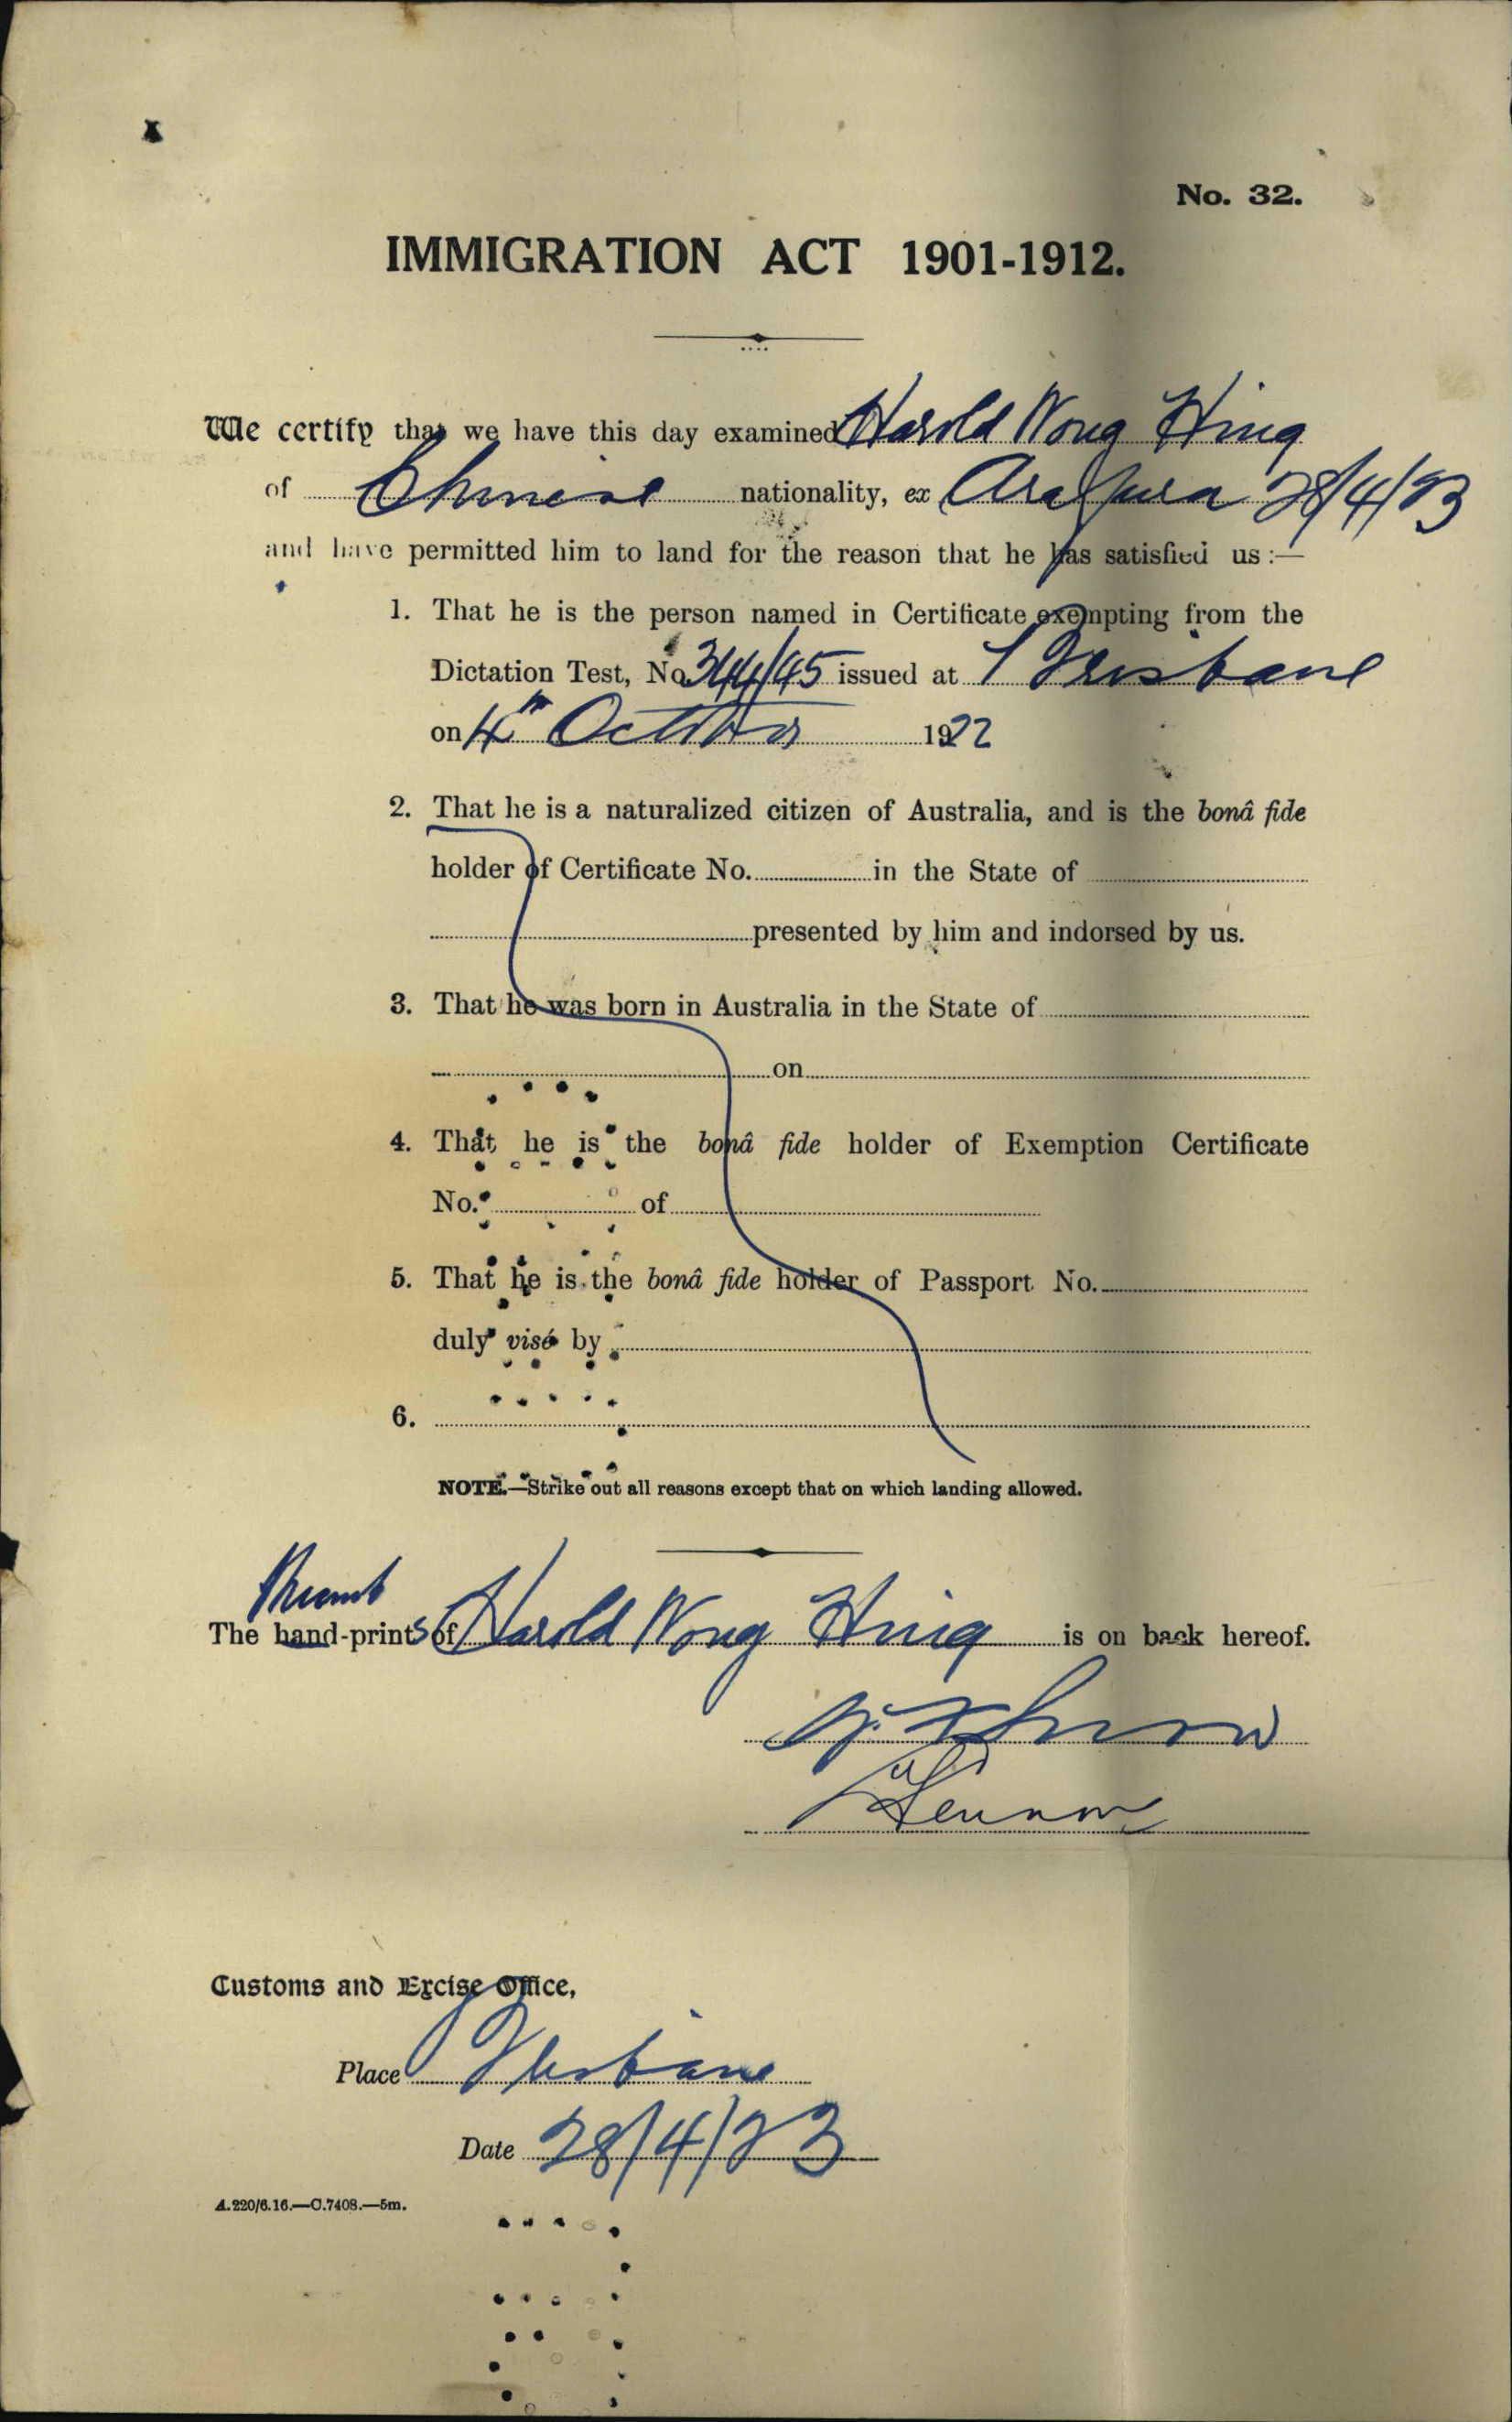 No. 32.
IMMIGRATION ACT 1901-1912.
We certify that we have this day examined Harold Wong Hing
of Chinese nationality, ex Arafura 28/4/23
and have permitted him to land for the reason that he has satisfied us :—
1. That he is the person named in Certificate exempting from the
Dictation Test, No 344/45 issued at Brisbane
on 4th October 1922
2. That he is a naturalized citizen of Australia, and is the bonâ fide
holder of Certificate No. in the State of
presented by him and indorsed by us.
3. That he was born in Australia in the State of
on
4. That he is the bonâ fide holder of Exemption Certificate
No. of
5. That he is the bonâ fide holder of Passport No.
duly visé by
6.
NOTE.—Strike out all reasons except that on which landing allowed.
Thumb
The hand-prints of Harold Wong Hing is on back hereof.
Customs and Excise Office,
Place Brisbane
Date 28/4/23
A.220/6.16.—C.7408.—5m.